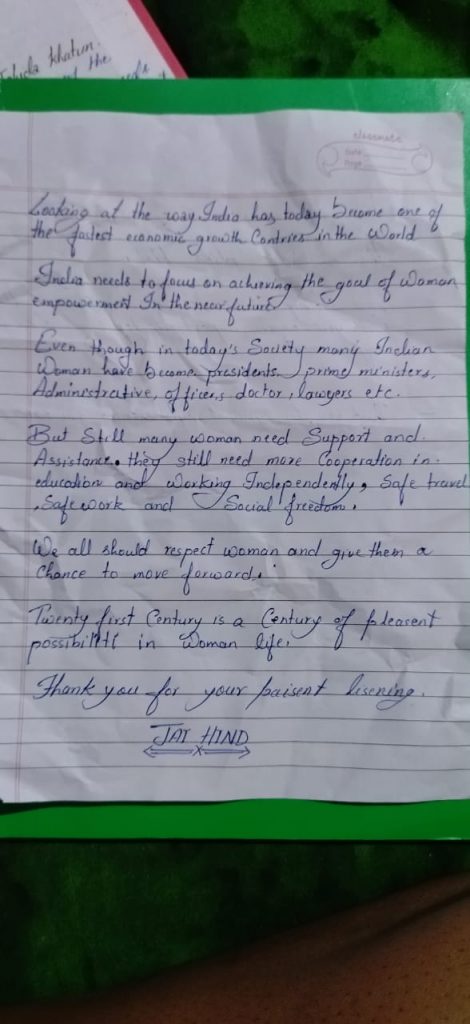 khatun.
the
classmate
Date
Page
Looking at the way India has today become one of
the fastest economic growth Contries in the World
India needs to focus on achieving the goal of Woman
empowerment In the near future
Even though in today's Society many Indian
Woman have become presidents prime ministers,
Administrative, officers, doctor, lawyers etc.
But Still many woman need Support and
Assistance. they still need more Cooperation in
education and Working Independently, Safe travel
, Safe work and Social freedom.
We all should respect woman and give them a
Chance to move forward.
Twenty first Century is a Century of pleasent
possibiliti in Woman life.
Thank you for your paisent lisening.
JAY HIND